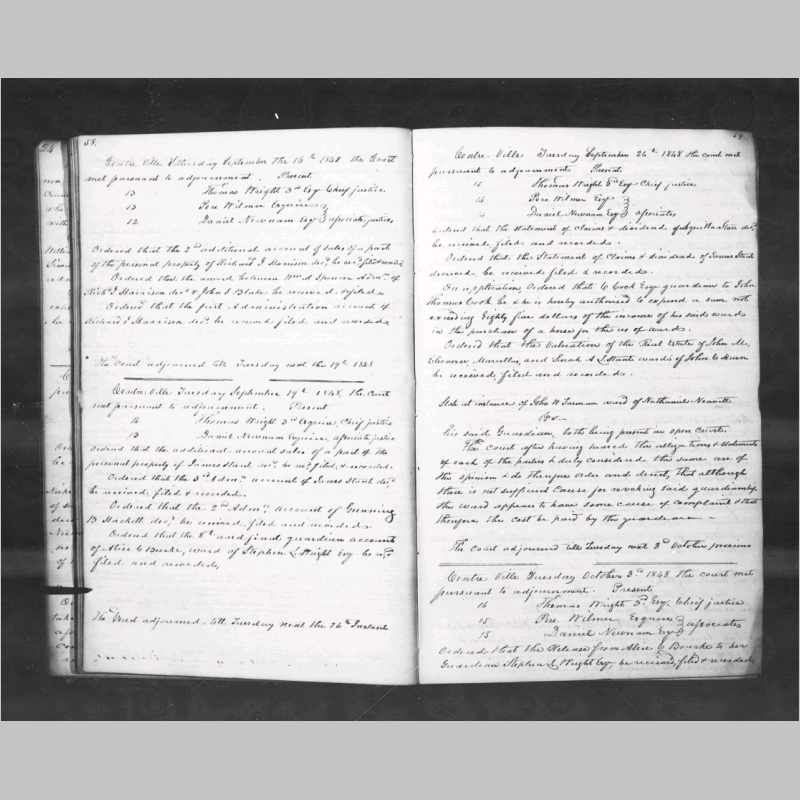 58.
Centre Ville Saturday September the 16th 1848 the Court
met pursuant to adjournment. Present
13 Thomas Wright 3rd Esqr Chief justice
13 Pere Wilmer Esquire
12 Daniel Newnam Esqr associate justices
Ordered that the 2nd additional account of sales of a part
of the personal property of Richard J Harrison decd. be recd filed & recorded
Ordered that the award between Wm A Spencer Admr. of
Richd J Harrison decd. & John S Blake be received & filed
Ordered that the first Administration account of
Richard J Harrison decd. be received filed and recorded
The Court adjourned till Tuesday next the 19th 1848
Centre Ville Tuesday September 19th 1848, the Court
met pursuant to adjournment. Present
14 Thomas Wright 3rd Esquire, Chief justice
13 Daniel Newnam Esquire, associate justice
Ordered that the additional account sales of a part of the
personal property of James decd. be recd filed & recorded.
Ordered that the 3rd Admn. account of James decd.
be received filed & recorded.
Ordered that the 2nd Admn. account of Gunning
B Hackett decd. be received filed and recorded
Ordered that the 8th and final guardian account
of Alice C Bourke, ward of Stephen L Wright Esq be recd
filed and recorded,
The Court adjourned till Tuesday next the 26th Instant
59
Centre Ville Tuesday September 26th 1848 the court met
pursuant to adjournment Present
15 Thomas Wright 3rd Esqr Chief justice
14 Pere Wilmer Esqr
14 Daniel Newnam Esqr associates
Ordered that the Statement of Claims & dividend of decd.
be received filed and recorded.
Ordered that the Statement of Claims & dividend of James
deceased be received filed & recorded.
On application Ordered that C Cook Esqr guardian to John
Thomas Cook be & he is hereby authorized to expend a sum not
exceeding Eighty five dollars of the income of his said wards
in the purchase of a horse for the use of wards.
Ordered that the Valuation of the Real Estate of John M,
Eleanor and Sarah A L wards of John C
be received, filed and recorded.
State at instance of John W ward of Nathaniel
vs
his said Guardian, both being present in open Court
The court after having heard the allegations & statements
of each of the parties & duly considered the same are of
the opinion & do therefore order and direct, that although
there is not sufficient Cause for revoking said guardianship
the ward appears to have some cause of complaint & that
therefore the cost be paid by the guardian
The court adjourned till Tuesday next 3rd October proximo
Centre Ville Tuesday October 3rd 1848 the court met
pursuant to adjournment. Present
16 Thomas Wright 3rd Esq. Chief justice
15 Pere Wilmer Esquire
15 Daniel Newnam Esqr associates
Ordered that the Release from Alice C Bourke to her
Guardian Stephen L Wright Esq, be received, filed & recorded